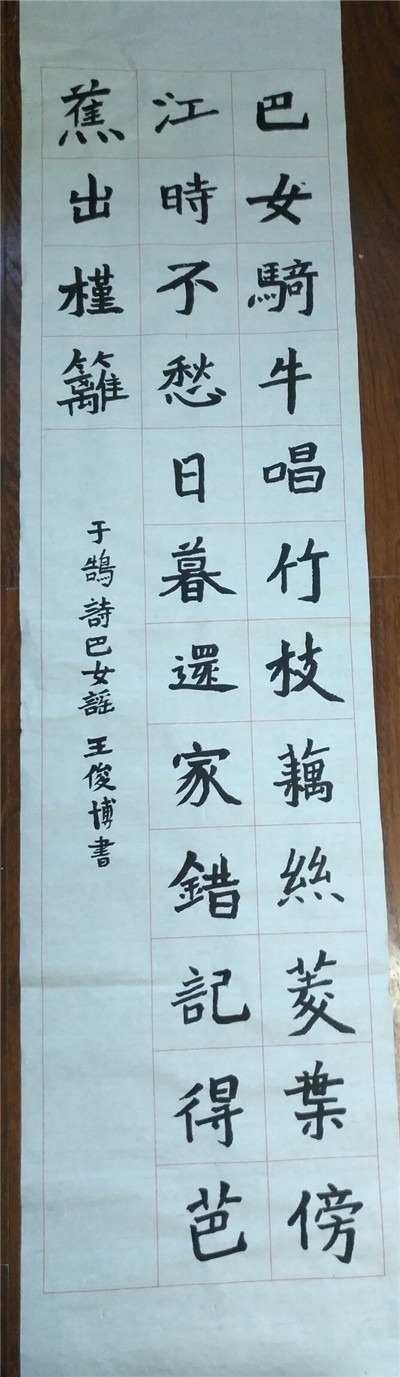 巴女騎牛唱竹枝藕絲菱葉傍
江時不愁日暮還家錯記得芭
蕉出槿籬
于鵠詩巴女謡王俊博書